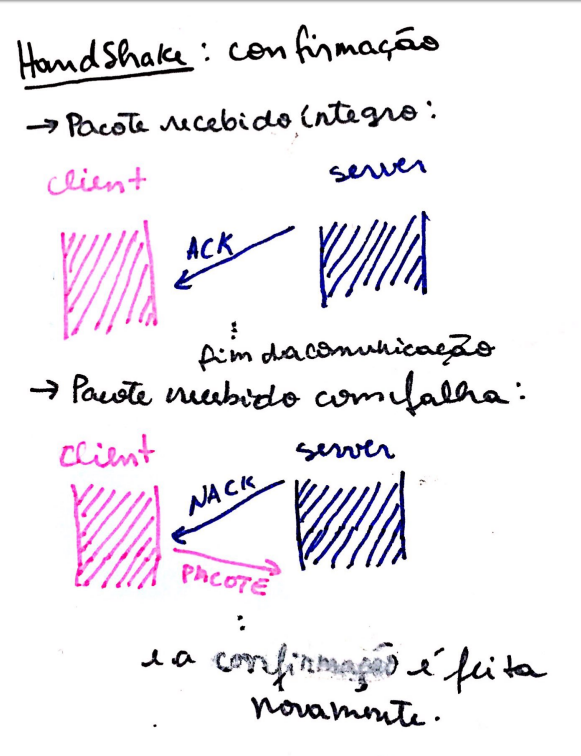 HandShake: confirmação
→ Pacote recebido íntegro:
client server
ACK
⋮
fim da comunicação
→ Pacote recebido com falha:
client server
NACK
PACOTE
:
e a confirmação é feita
novamente.